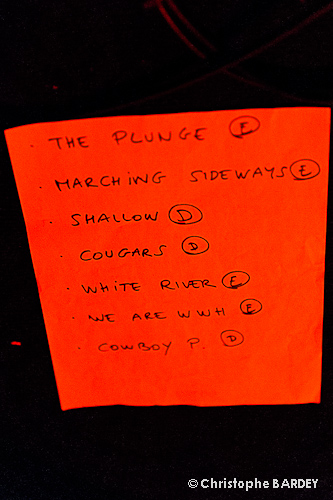 · THE PLUNGE E
· MARCHING SIDEWAYS E
· SHALLOW D
· COUGARS D
· WHITE RIVER E
· WE ARE WWH E
· COWBOY P. D
© Christophe BARDEY